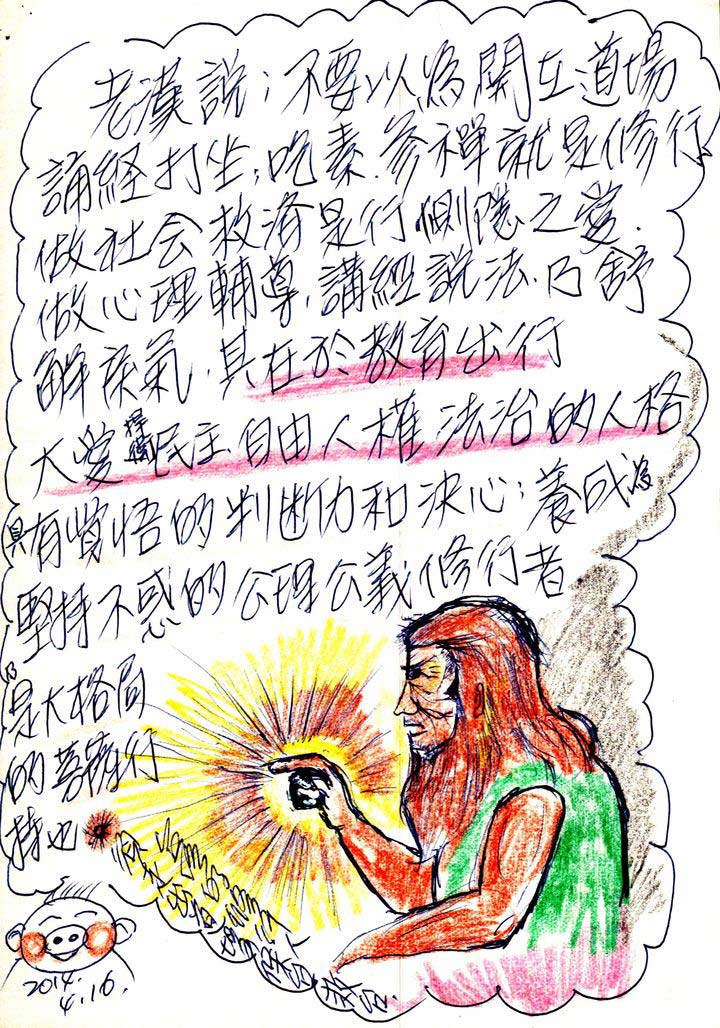 老漢說；不要以為開立道場
誦経打坐，吃素．參禪就是修行
做社会救济是行惻隱之愛．
做心理輔導，講經說法，乃舒
解 氣．其在於教育出行
大愛 民主．自由人權法治的人格
具有覺悟的判断力和決心；養成為
堅持不惑的公理公義修行者
乃
是大格局
的菩薩行
持也
2014.
4.16.